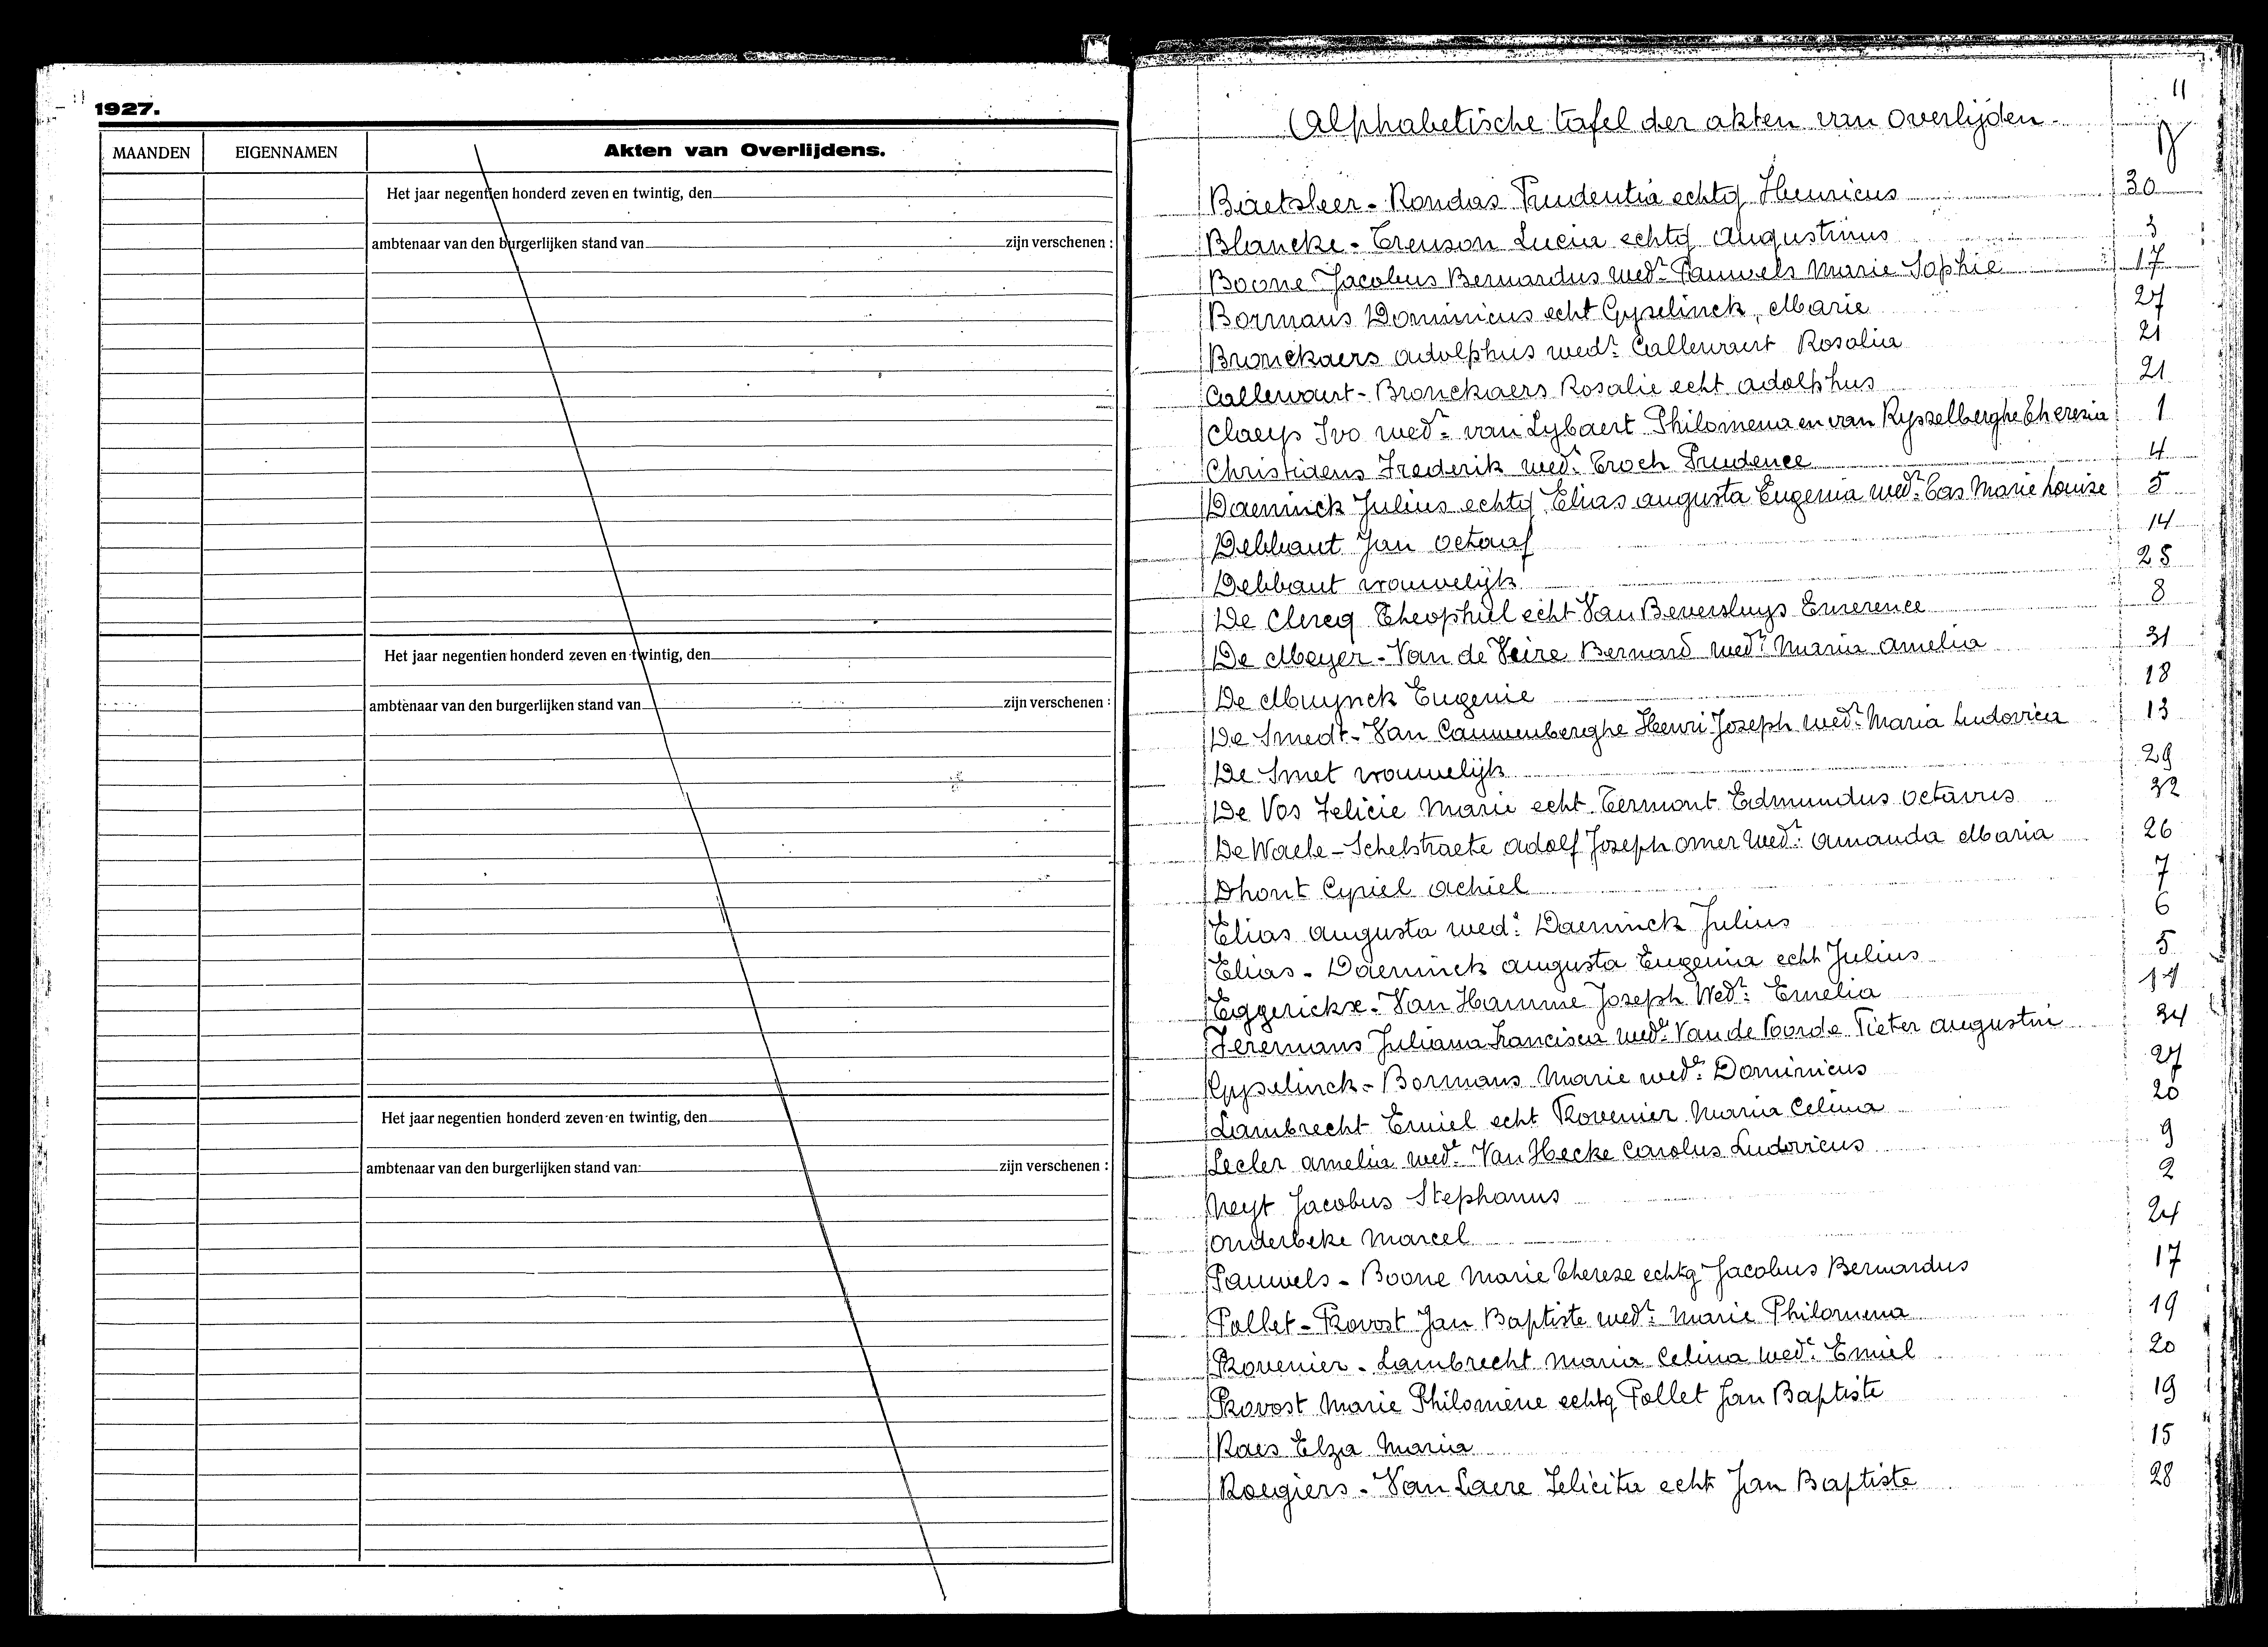 1927.
MAANDEN EIGENNAMEN Akten van Overlijdens.
Het jaar negentien honderd zeven en twintig, den
ambtenaar van den burgerlijken stand van zijn verschenen :
Het jaar negentien honderd zeven en twintig, den
ambtenaar van den burgerlijken stand van zijn verschenen :
Het jaar negentien honderd zeven en twintig, den
ambtenaar van den burgerlijken stand van zijn verschenen :
11
Alphabetische tafel der akten van overlijden.
Baetsleer - Rondas Prudentia echtg Henricus 30
Blancke - Trenson Lucia echtg Augustinus 3
Boone Jacobus Bernardus wedr Pauwels Marie Sophie 17
Bormans Dominicus echt Gyselinck, Marie 27
Bronckaers Adolphus wedr Callewaert Rosalia 21
Callewaert - Bronckaers Rosalie echt Adolphus 21
Claeys Ivo wedr van Lybaert Philomena en van Rysselberghe Theresia 1
Christiaens Frederik wedr Troch Prudence 4
Daeninck Julius echtg Elias Augusta Eugenia wedr Cas Marie Louise 5
Debbaut Jan Octaaf 14
Debbaut vrouwelijk 25
De Clercq Theophiel echt Van Beversluys Emerence 8
De Meyer - Van de Veire Bernard wedr Maria Amelia 31
De Muynck Eugenie 18
De Smedt - Van Cauwenberghe Henri Joseph wedr Maria Ludovica 13
De Smet vrouwelijk 29
De Vos Felicie Marie echt Termont Edmundus Octavus 32
De Waele - Schelstraete Adolf Joseph Omer wedr Amanda Maria 26
Dhont Cyriel Achiel 7
Elias Augusta wede Daeninck Julius 6
Elias - Daeninck Augusta Eugenia echt Julius 5
Eggerickx - Van Hamme Joseph Wedr Emelia
Feremans Juliana Francisca wede Van de Voorde Pieter Augustin 34
Gyselinck - Bormans Marie wede Dominicus 27
Lambrecht Emiel echt Provenier Maria Celina 20
Lecler Amelia wede Van Hecke Carolus Ludovicus 9
Neyt Jacobus Stephanus 2
Onderbeke Marcel 24
Pauwels - Boone Marie Therese echtg Jacobus Bernardus 17
Pollet - Provost Jan Baptiste wedr Marie Philomena 19
Provenier - Lambrecht Maria Celina wede Emiel 20
Provost Marie Philomène echtg Pollet Jan Baptiste 19
Raes Elza Maria 15
Roegiers - Van Laere Felicita echt Jan Baptiste 28